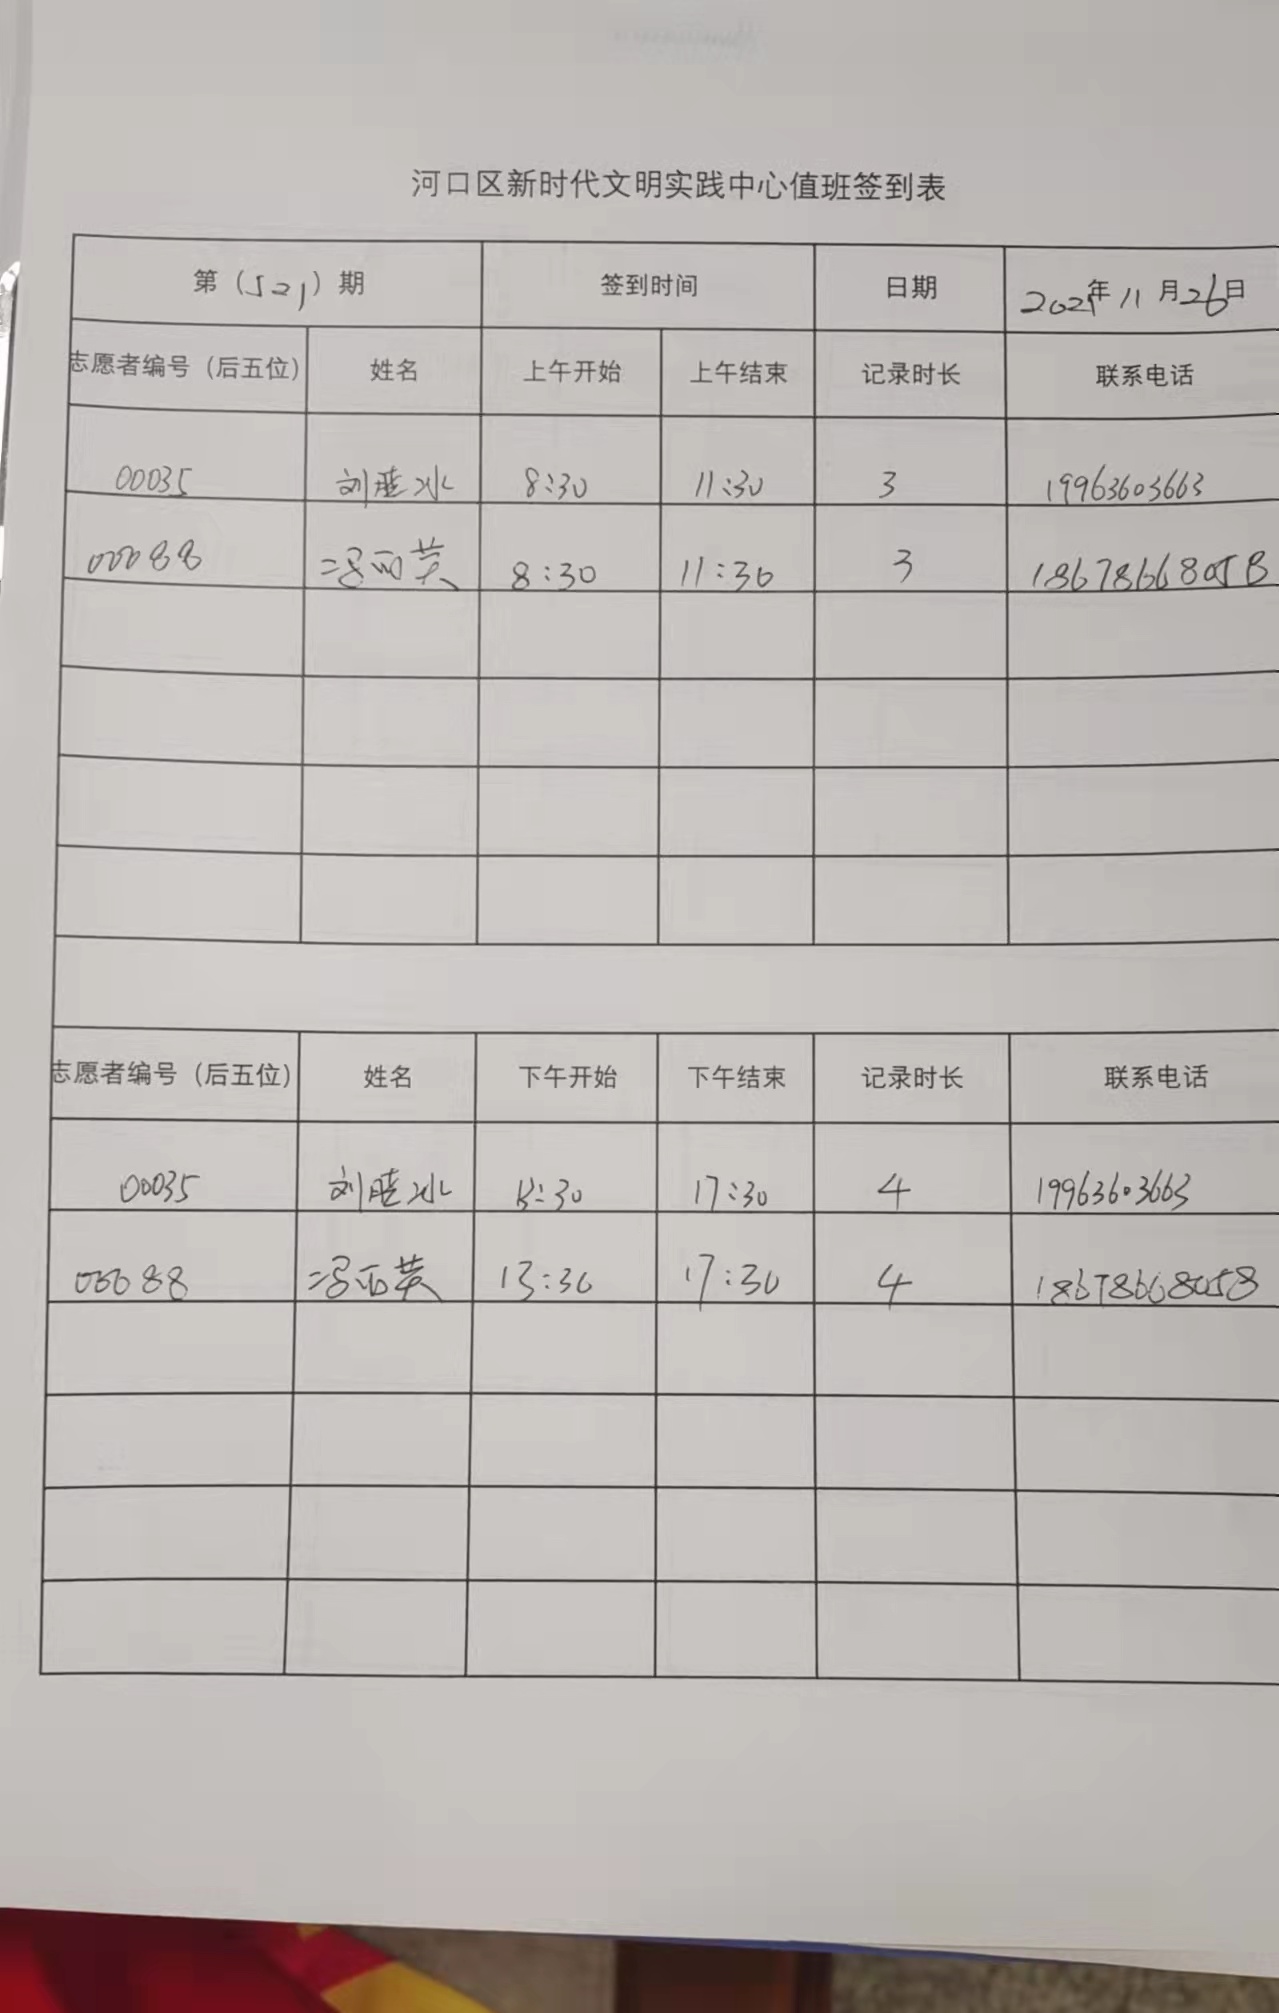 河口区新时代文明实践中心值班签到表
第（521）期 签到时间 日期 2021年11月26日
志愿者编号（后五位） 姓名 上午开始 上午结束 记录时长 联系电话
00035 刘 冰 8:30 11:30 3 19963603663
00088 冯丽英 8:30 11:30 3 18678668058
志愿者编号（后五位） 姓名 下午开始 下午结束 记录时长 联系电话
00035 刘 冰 13:30 17:30 4 19963603663
00088 冯丽英 13:30 17:30 4 18678668058